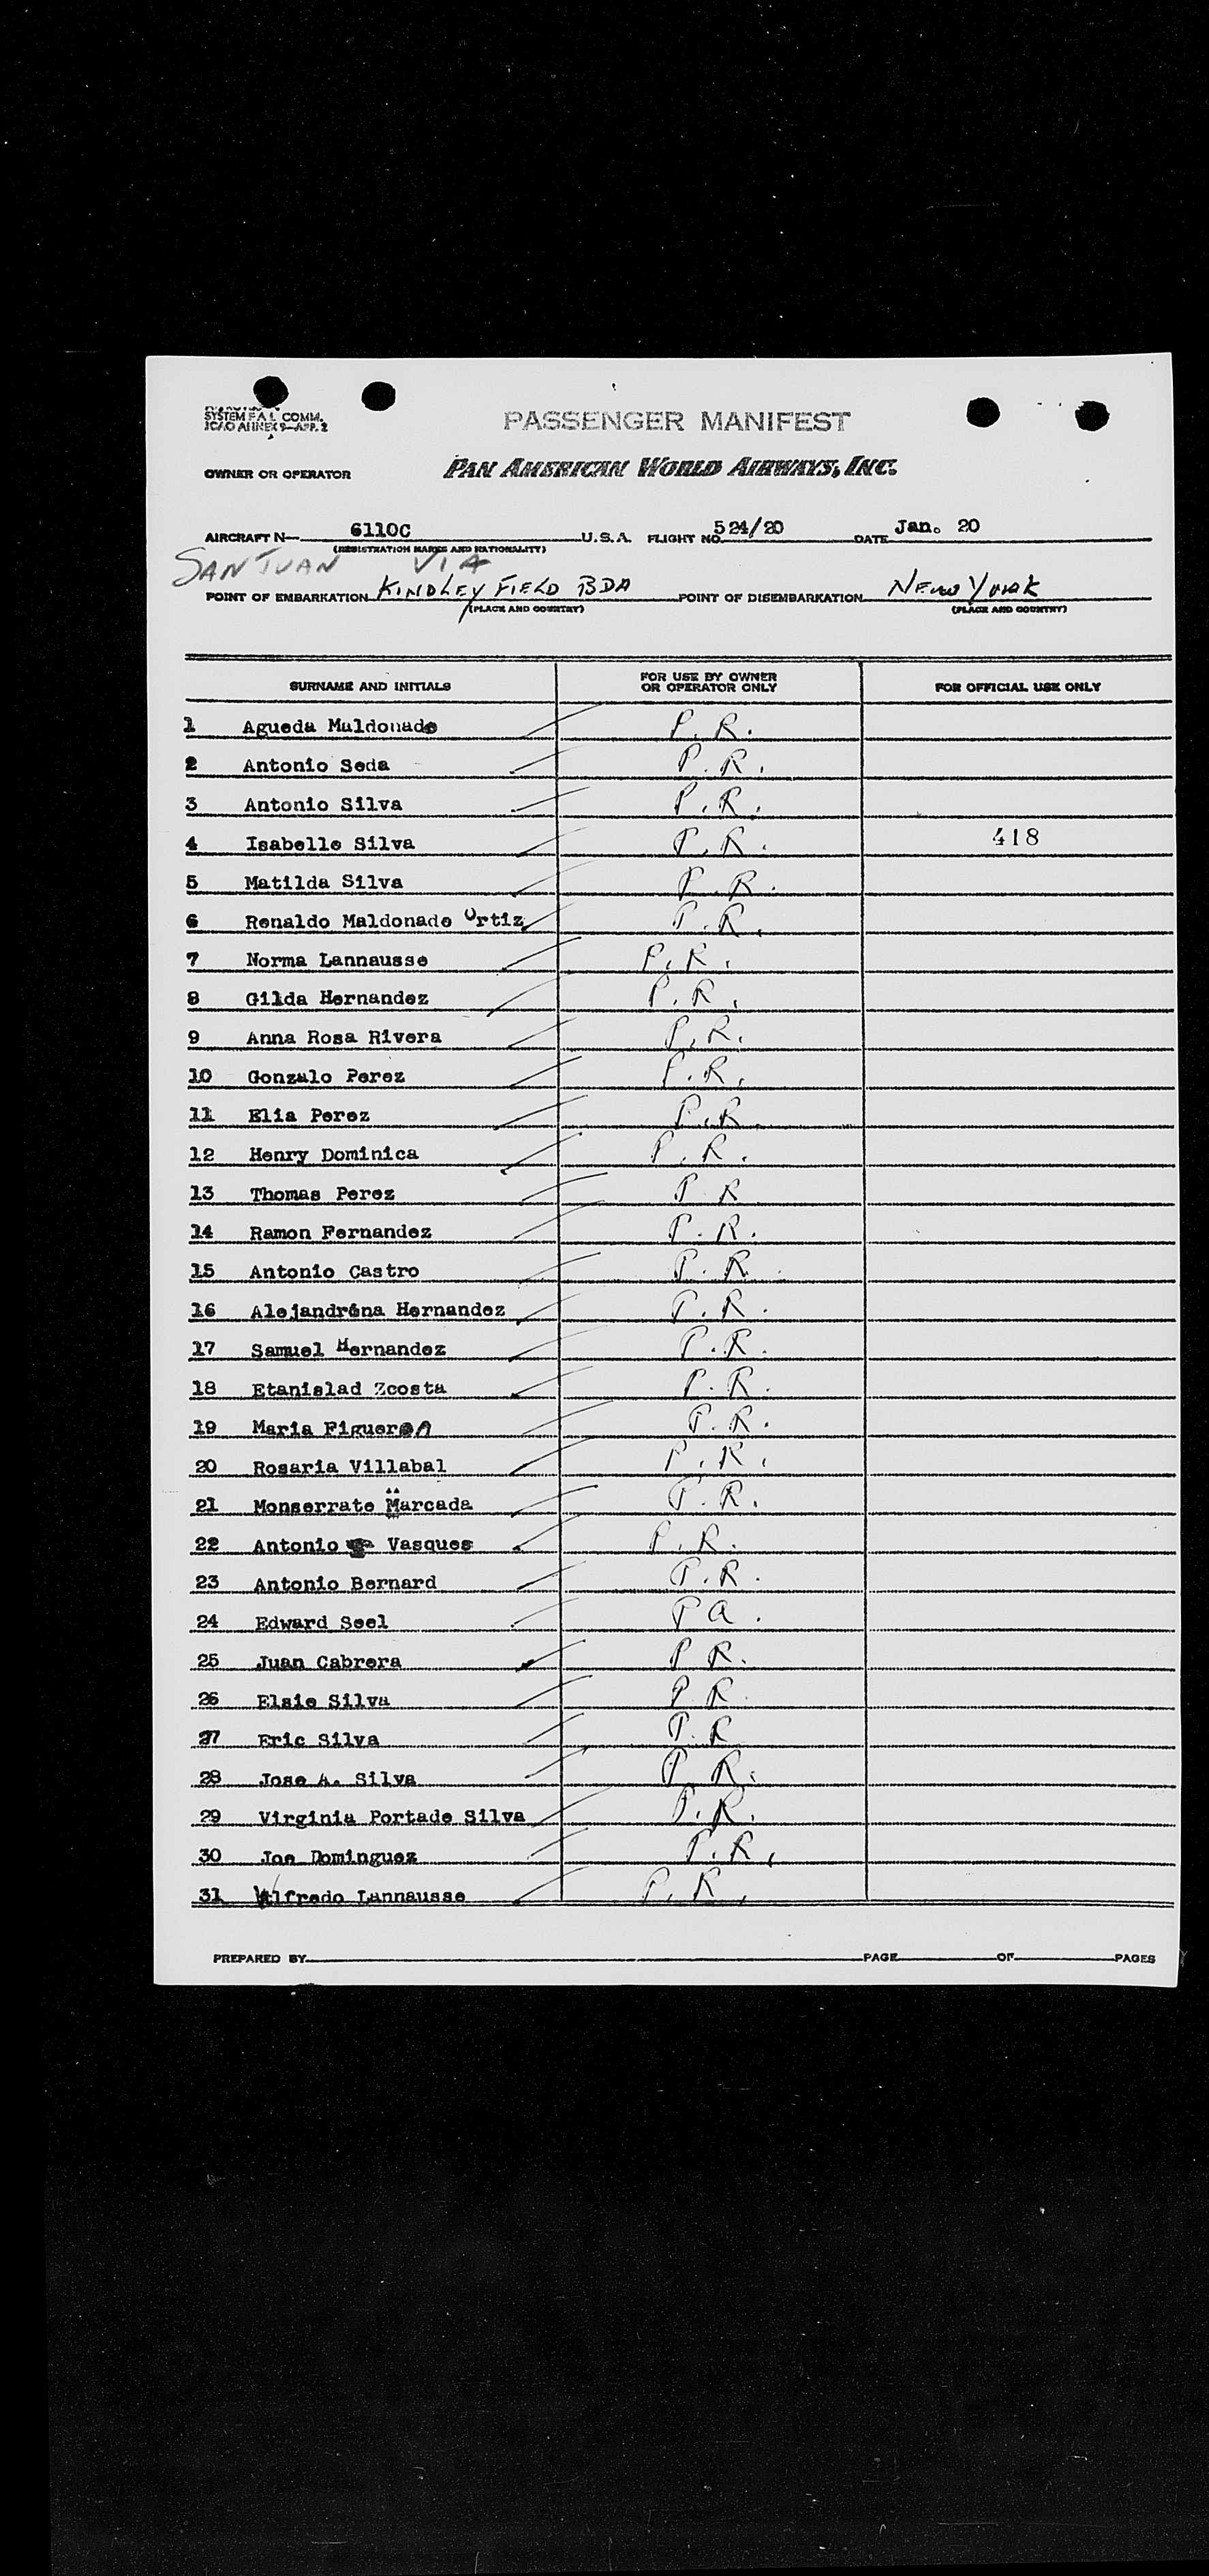 SYSTEM F.A.L. COMM.
ICAO ANNEX 9—APP. 2
PASSENGER MANIFEST
OWNER OR OPERATOR PAN AMERICAN WORLD AIRWAYS, INC.
AIRCRAFT N— 6110C U.S.A. FLIGHT NO. 524/20 DATE Jan. 20
(REGISTRATION MARKS AND NATIONALITY)
SAN JUAN VIA
POINT OF EMBARKATION KINDLEY FIELD BDA POINT OF DISEMBARKATION NEW YORK
(PLACE AND COUNTRY) (PLACE AND COUNTRY)
SURNAME AND INITIALS FOR USE BY OWNER OR OPERATOR ONLY FOR OFFICIAL USE ONLY
1 Agueda Maldonado P.R.
2 Antonio Seda P.R.
3 Antonio Silva P.R.
4 Isabelle Silva P.R. 418
5 Matilda Silva P.R.
6 Renaldo Maldonado Ortiz P.R.
7 Norma Lannausse P.R.
8 Gilda Hernandez P.R.
9 Anna Rosa Rivera P.R.
10 Gonzalo Perez P.R.
11 Elia Perez P.R.
12 Henry Dominica P.R.
13 Thomas Perez P R
14 Ramon Fernandez P.R.
15 Antonio Castro P.R.
16 Alejandrena Hernandez P.R.
17 Samuel Hernandez P.R.
18 Etanislad Zcosta P.R.
19 Maria Figueroa P.R.
20 Rosaria Villabal P.R.
21 Monserrate Marcada P.R.
22 Antonio Vasques P.R.
23 Antonio Bernard P.R.
24 Edward Seel P a.
25 Juan Cabrera P R.
26 Elsie Silva P R.
27 Eric Silva P.R
28 Jose A. Silva P R.
29 Virginia Portade Silva P.R.
30 Joe Dominguez P.R.
31 Alfredo Lannausse P.R.
PREPARED BY PAGE OF PAGES